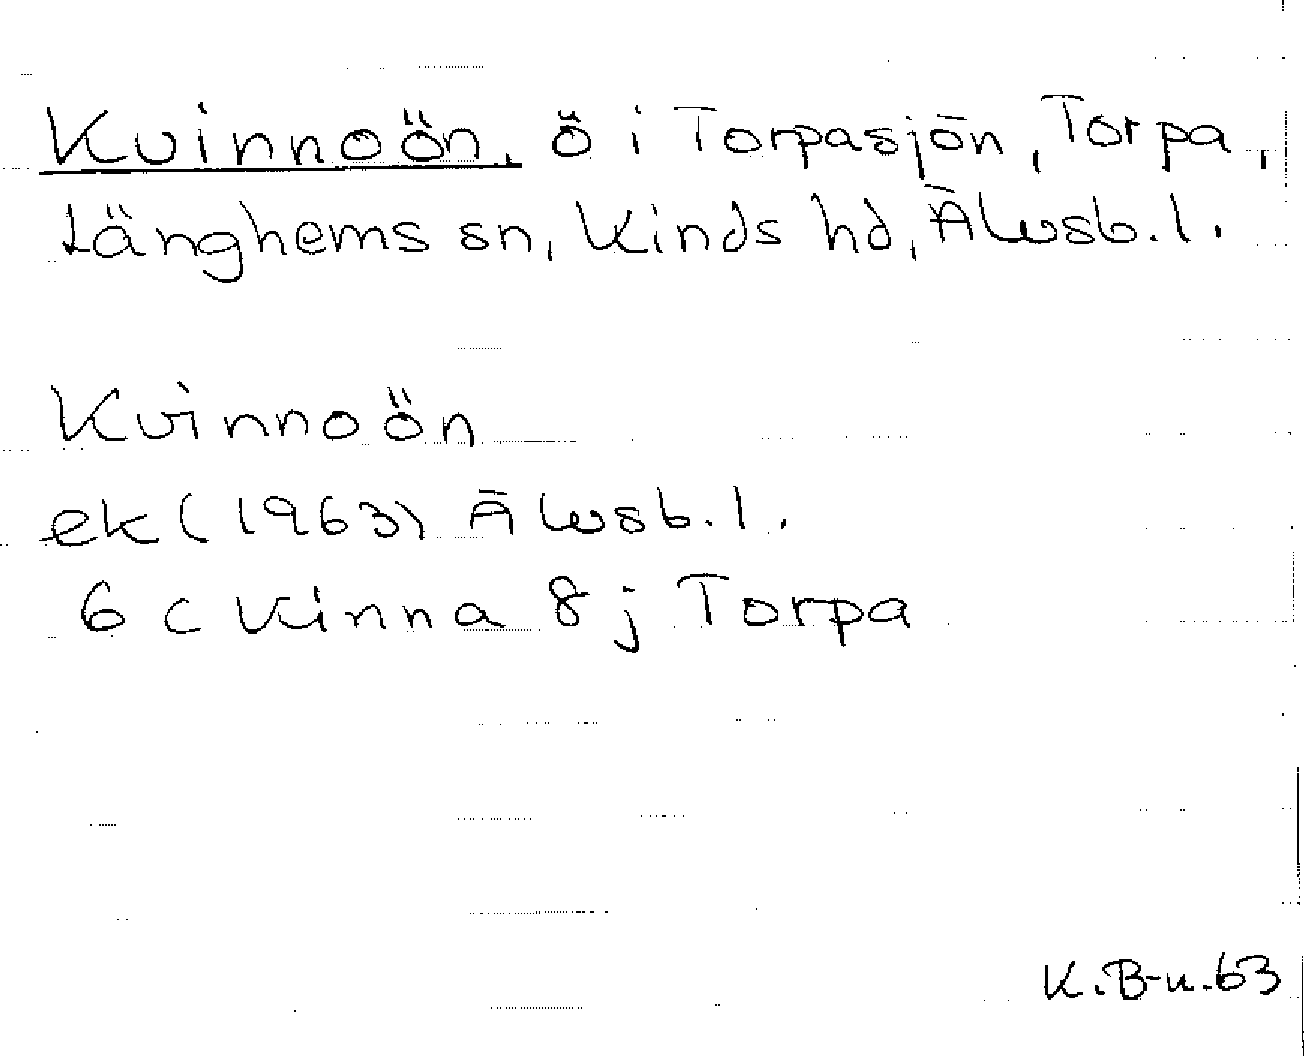 Kvinnoön, ö i Torpasjön, Torpa,
Länghems sn, Kinds hd, Älvsb.l.
Kvinnoön
ek (1963) Älvsb.l.
6c Kinna 8j Torpa
K.B-n.63